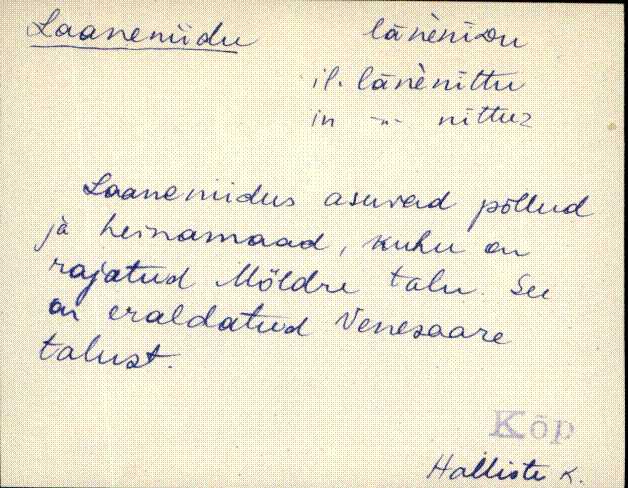 Laaneniidu
lānènion
il. lānènittu
in -"- nittuz
Laaneniidus asuvad põllud
ja heinamaad, kuhu on
rajatud Möldre talu. See
on eraldatud Venesaare
talust.
Kõp
Halliste K.